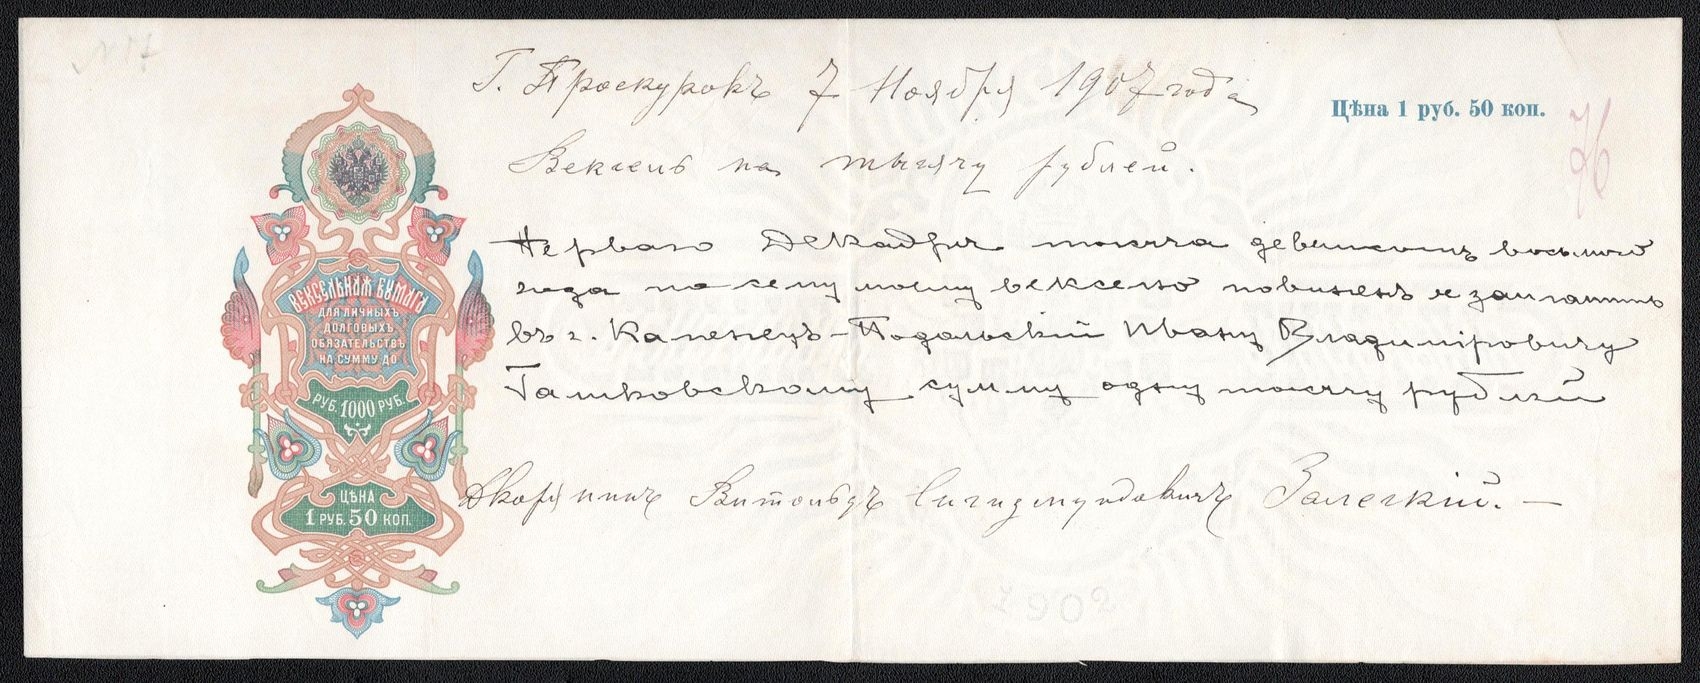 № 17
Г. Проскуровъ 7 Ноября 1907 года
Цѣна 1 руб. 50 коп.
Вексель на тысячу рублей.
Перваго Декабря тысяча девятьсотъ восьмого
года по сему моему векселю повиненъ я заплатить
въ г. Каменецъ-Подольскій Ивану Владиміровичу
сумму одну тысячу рублей
Дворянинъ Витольдъ Сигизмундовичъ Залескій. —
ВЕКСЕЛЬНАЯ БУМАГА
ДЛЯ ЛИЧНЫХЪ
ДОЛГОВЫХЪ
ОБЯЗАТЕЛЬСТВЪ
НА СУММУ ДО
РУБ. 1000 РУБ.
ЦѢНА
1 РУБ. 50 КОП.
1902